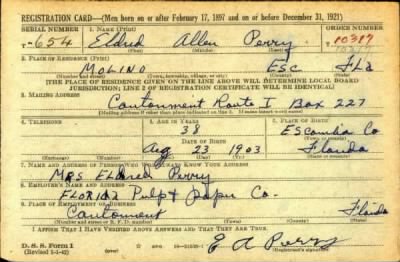 REGISTRATION CARD—(Men born on or after February 17, 1897 and on or before December 31, 1921)
SERIAL NUMBER 1. NAME (Print) ORDER NUMBER
T 654 Eldred Allen Perry 10317
(First) (Middle) (Last)
2. PLACE OF RESIDENCE (Print)
MOLINO ESC FLA
(Number and street) (Town, township, village, or city) (County) (State)
[THE PLACE OF RESIDENCE GIVEN ON THE LINE ABOVE WILL DETERMINE LOCAL BOARD
JURISDICTION; LINE 2 OF REGISTRATION CERTIFICATE WILL BE IDENTICAL]
3. MAILING ADDRESS
Cantonment Route 1 Box 227
[Mailing address if other than place indicated on line 2. If same insert word same]
4. TELEPHONE 5. AGE IN YEARS 6. PLACE OF BIRTH
38 Escambia Co
DATE OF BIRTH (Town or county)
Aug 23 1903 Florida
(Exchange) (Number) (Mo.) (Day) (Yr.) (State or country)
7. NAME AND ADDRESS OF PERSON WHO WILL ALWAYS KNOW YOUR ADDRESS
MRS Eldred Perry
8. EMPLOYER'S NAME AND ADDRESS
FLORIDA Pulp & Paper Co.
9. PLACE OF EMPLOYMENT OR BUSINESS
Cantonment Florida
(Number and street or R. F. D. number) (Town) (County) (State)
I AFFIRM THAT I HAVE VERIFIED ABOVE ANSWERS AND THAT THEY ARE TRUE.
D. S. S. Form 1
(Revised 1-1-42) E A Perry
(Registrant's signature)